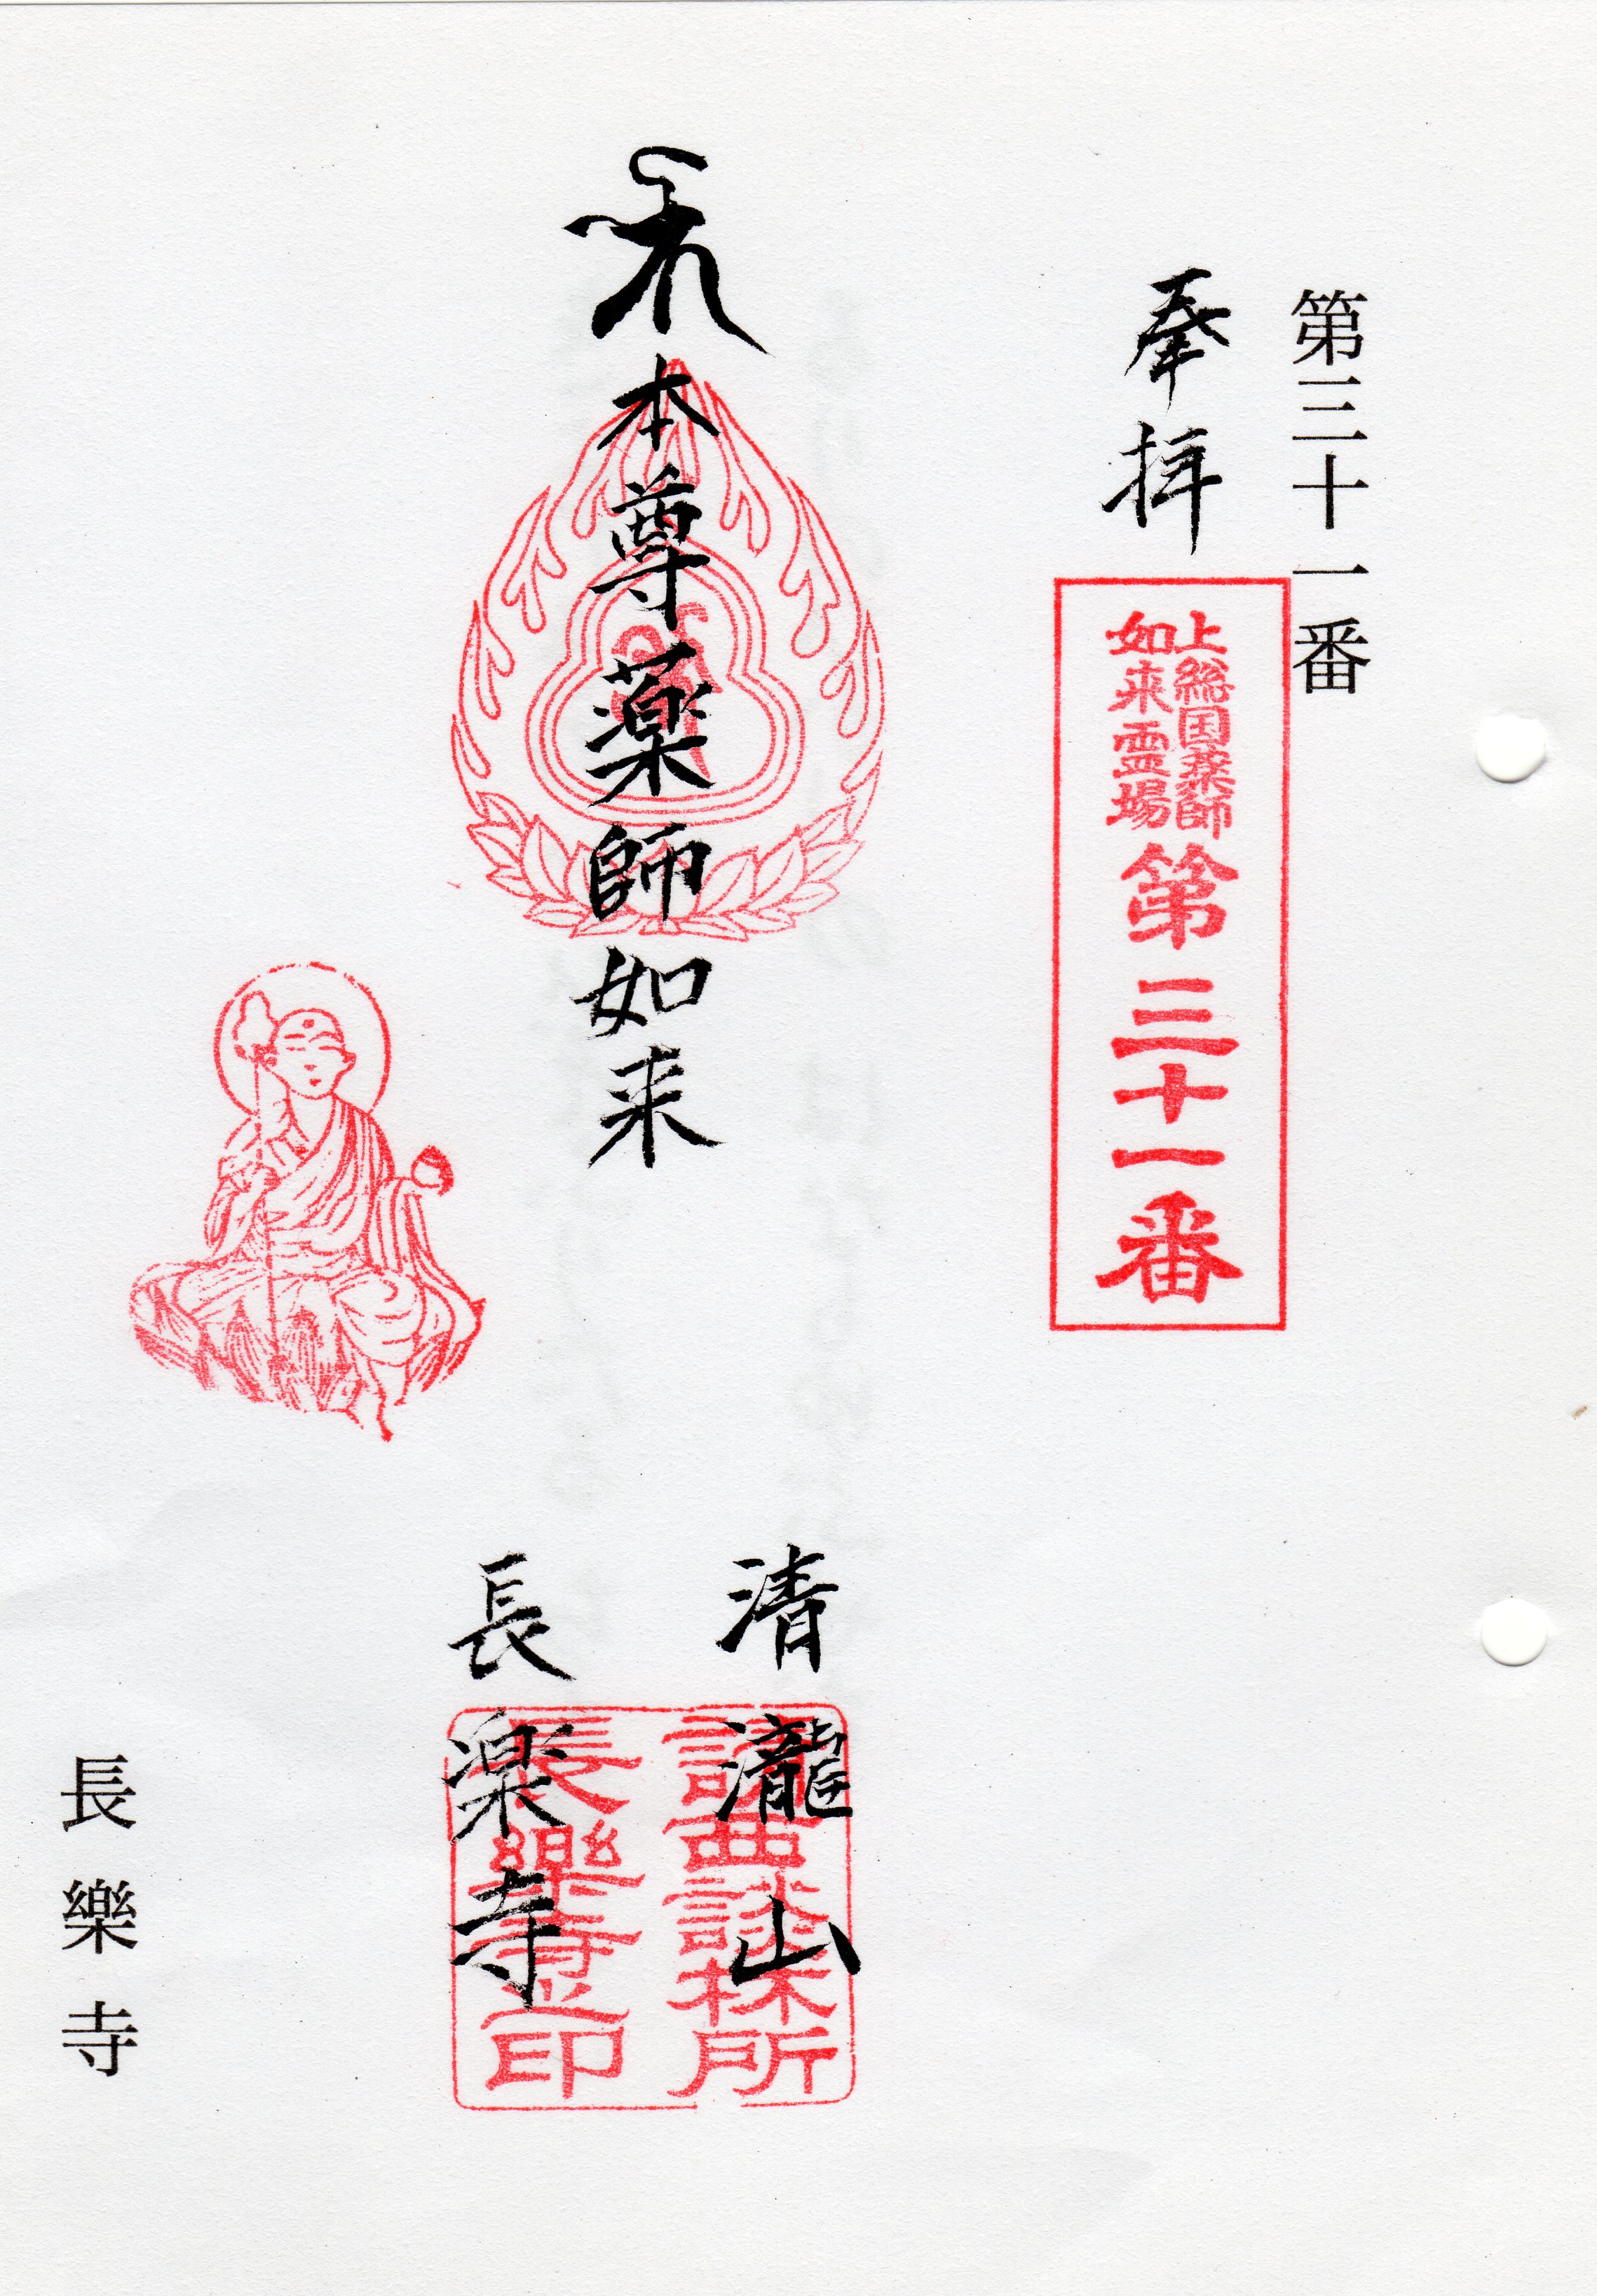 第三十一番
奉拝
上総国薬師
如来霊場
第三十一番
本尊薬師如来
清瀧山
長楽寺
談林所
長樂寺
印
長樂寺